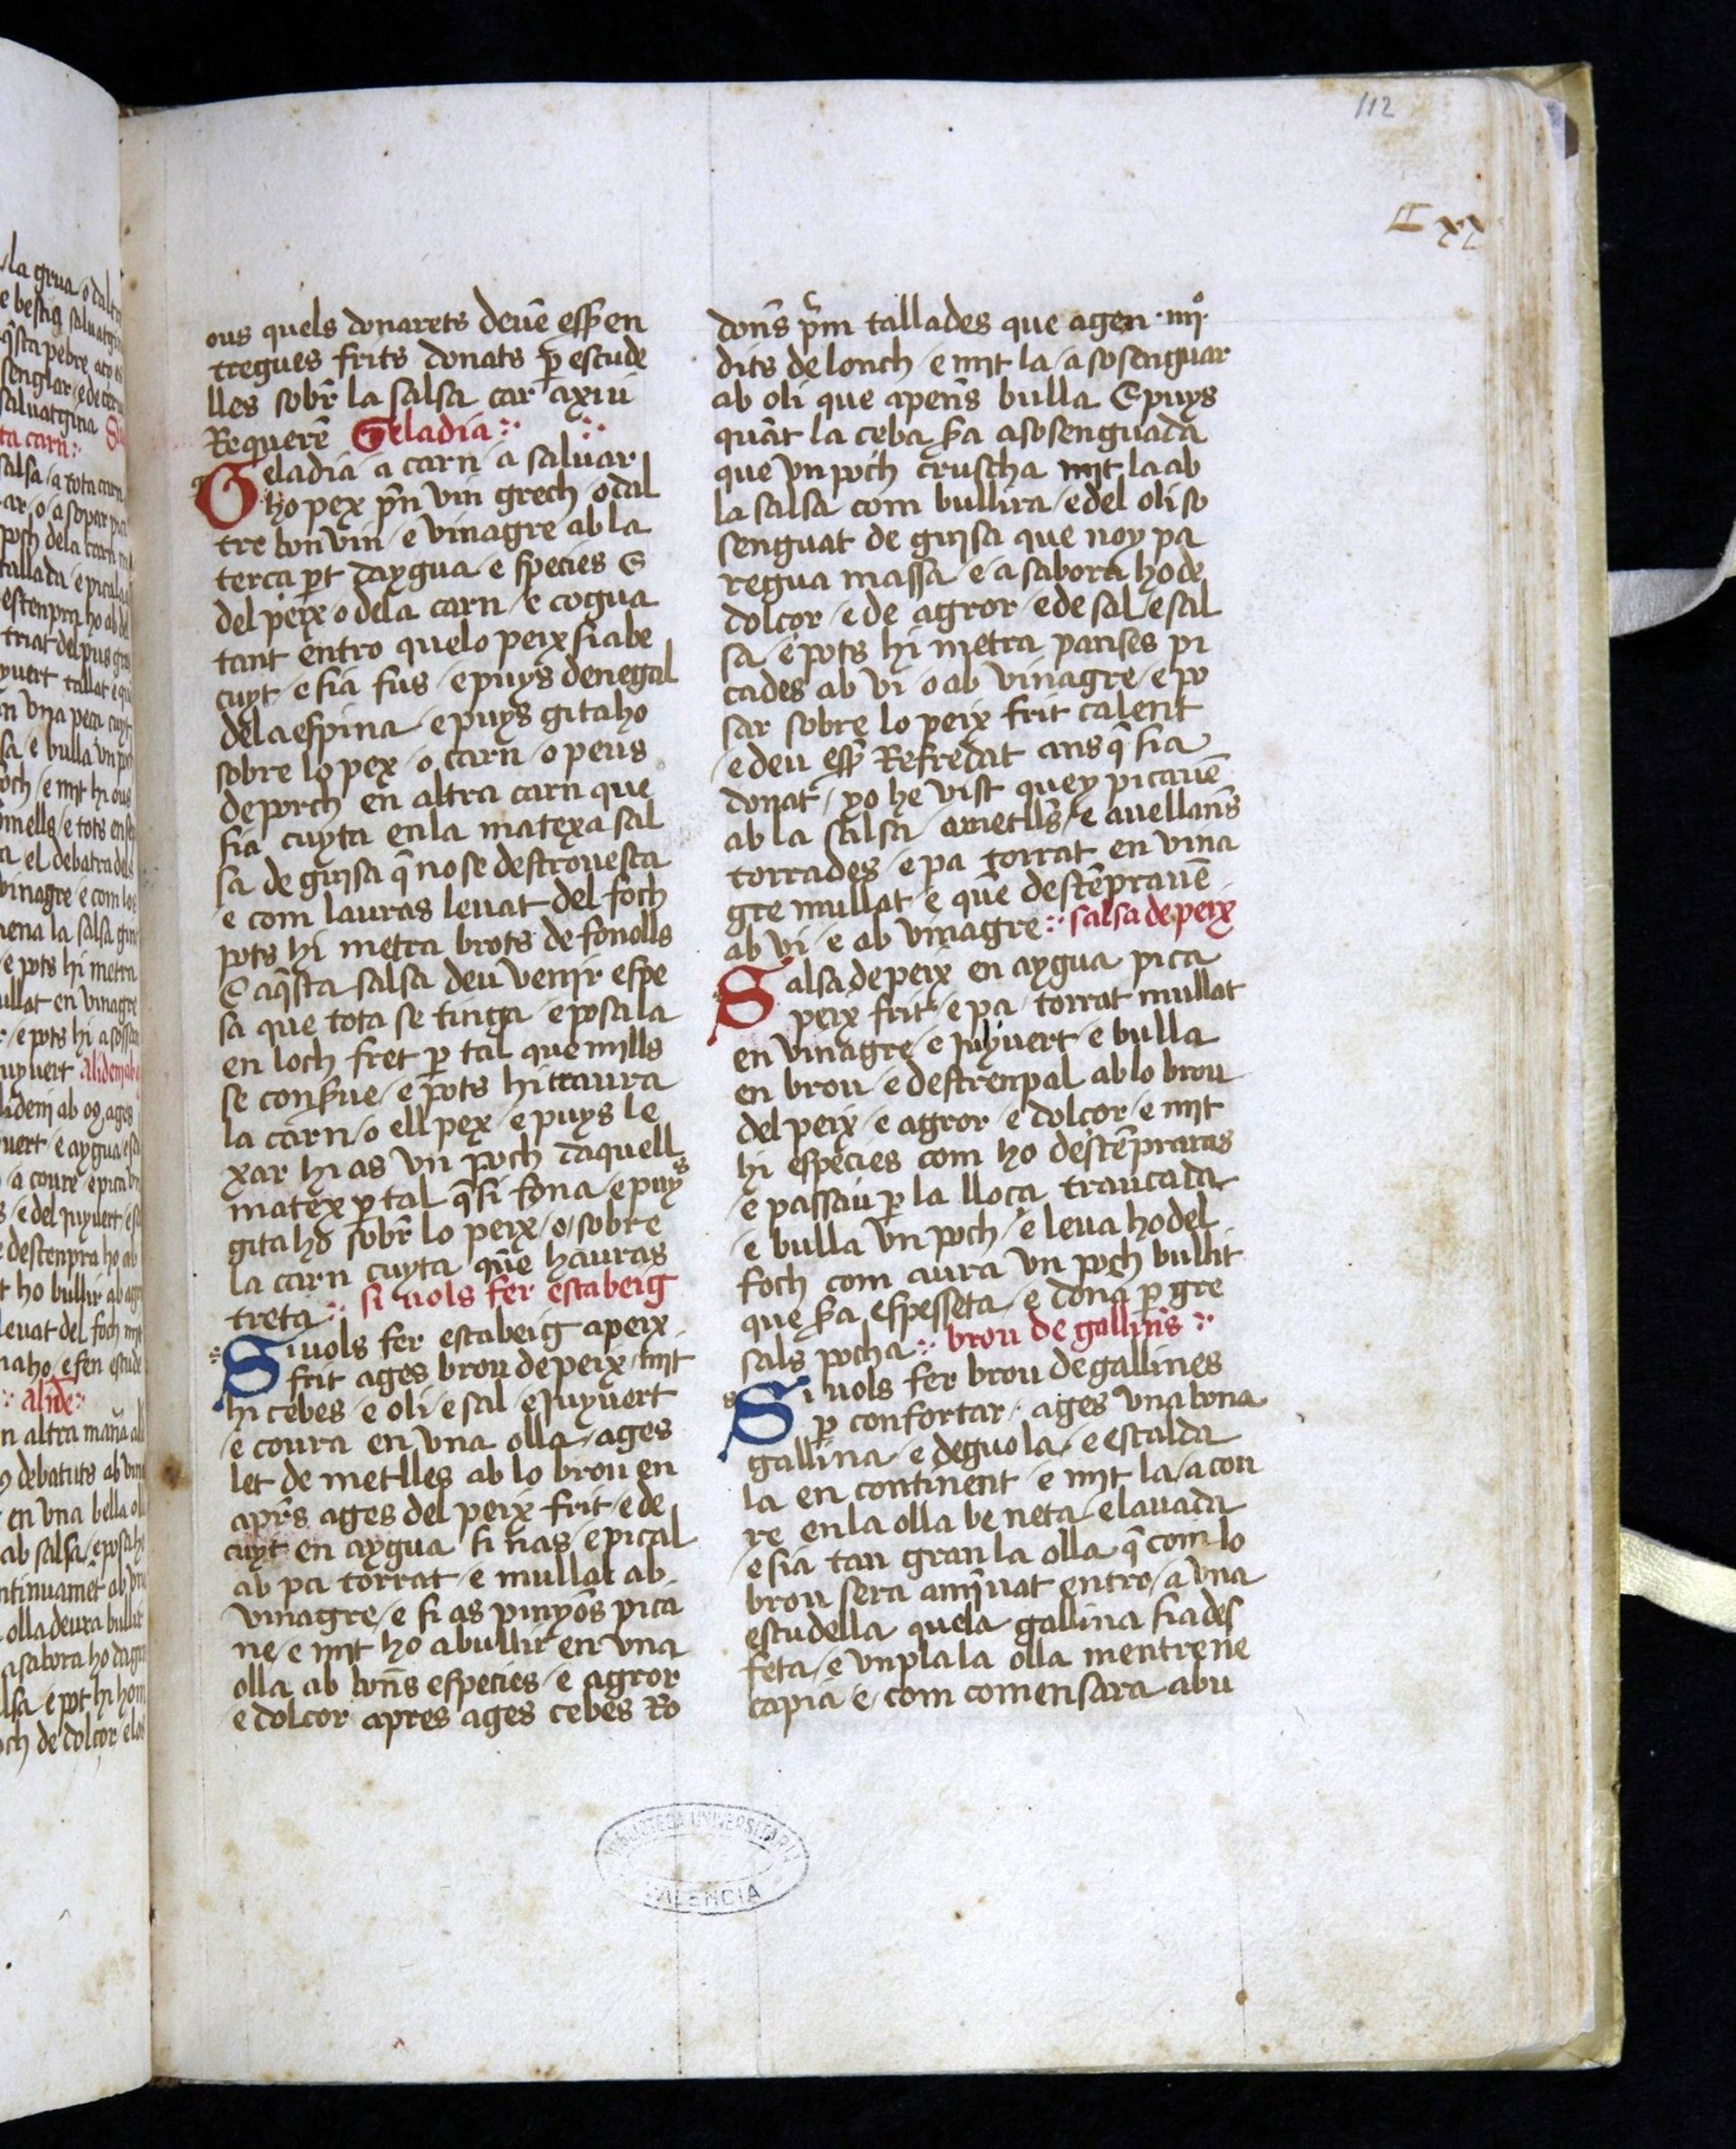 112
CC xx
ous quels donarets deuē esser en
tregues frits donats ꝑ escude
lles sobr̄ la salsa car axi ū
Requerē Geladia
Geladia a carn a saluar
ho pex pn̄ vin grech / o dal
tre bon vin / e vinagre ab la
terca ꝑt daygua e species E
del peix o dela carn / e cogua
tant entro quelo peix sia be
cuyt / e sia fus / e puys denegal
dela espina / e puys gitaho
sobre lo pex / o carn / o peus
de porch en altra carn que
sia cuyta enla matexa sal
sa de guisa q̄ nose destrouesca
e com lauras leuat del foch
pots hi metra brots de fonolls
E aq̄sta salsa deu venir espe
sa que tota se tinga / e posala
en loch fret ꝑ tal que mills
se conserue / e pots hi traura
la carn / o ell pex / e puys le
xar hi as vn poch daquell
matex ꝑ tal q̄ si fona / e puys
gitaho sobr̄ lo peix / o / sobre
la carn cuyta quē hauras
treta si uols fer escabeig
Si uols fer escabeig a peix
frit ages brou de peix / mit
hi cebes / e oli / e sal / e juyuert
e coura en vna olla / ages
let de metlles ab lo brou en
apr̄s ages del peix frit / e de
cuyt en aygua si nas / e pical
ab pa torrat / e mullat ab
vinagre / e si as pinyōs pica
ne / e mit ho abullir en vna
olla ab bon̄s especies / e agror
e dolcor apres ages cebes Ro
don̄s prim tallades que agen ·iiijº·
dits de lonch / e mit la / a sosenguar
ab oli que apen̄s bulla E puys
quāt la ceba sera asosenguada
que vn poch cruscha mit la ab
la salsa com bullira / e del oli so
senguat de guisa que noy pa
regua massa / e asabora hode
dolcor / e de agror / e de sal / e sal
sa / e pots hi metra panses pi
cades ab vi / o ab vinagre / e po
sar sobre lo peix frit calent
e deu esser Refredat ans q̄ sia
donat / yo he vist quey picauē
ab la salsa ametll̄s / e auellan̄s
torrades / e pa torrat en vina
gre mullat / e quē destēprauē
ab vi / e ab vinagre salsa de peix
Salsa de peix en aygua pica
peix frit / e pa torrat mullat
en vinagre / e juyuert / e bulla
en brou / e destrenpal ab lo brou
del peix / e agror / e dolcor / e mit
hi especies com ho destēpraras
e passau ꝑ la lloca traucada
e bulla vn poch / e leua hodel
foch com aura vn poch bullit
que sera espesseta / e dona ꝑ gre
sals pocha brou de gallin̄s
Si uols fer brou de gallines
ꝑ confortar / ages vna bona
gallina / e deguola / e escalda
la en continent / e mit la / a cou
re enla olla be neta / e lauada
e sia tan gran la olla q̄ com lo
brou sera amīuat entro / a vna
escudella quela gallina sia des
feta / e vnplala olla mentre ne
capia e / com comensara abu
BIBLIOTECA UNIVERSITARIA
VALENCIA